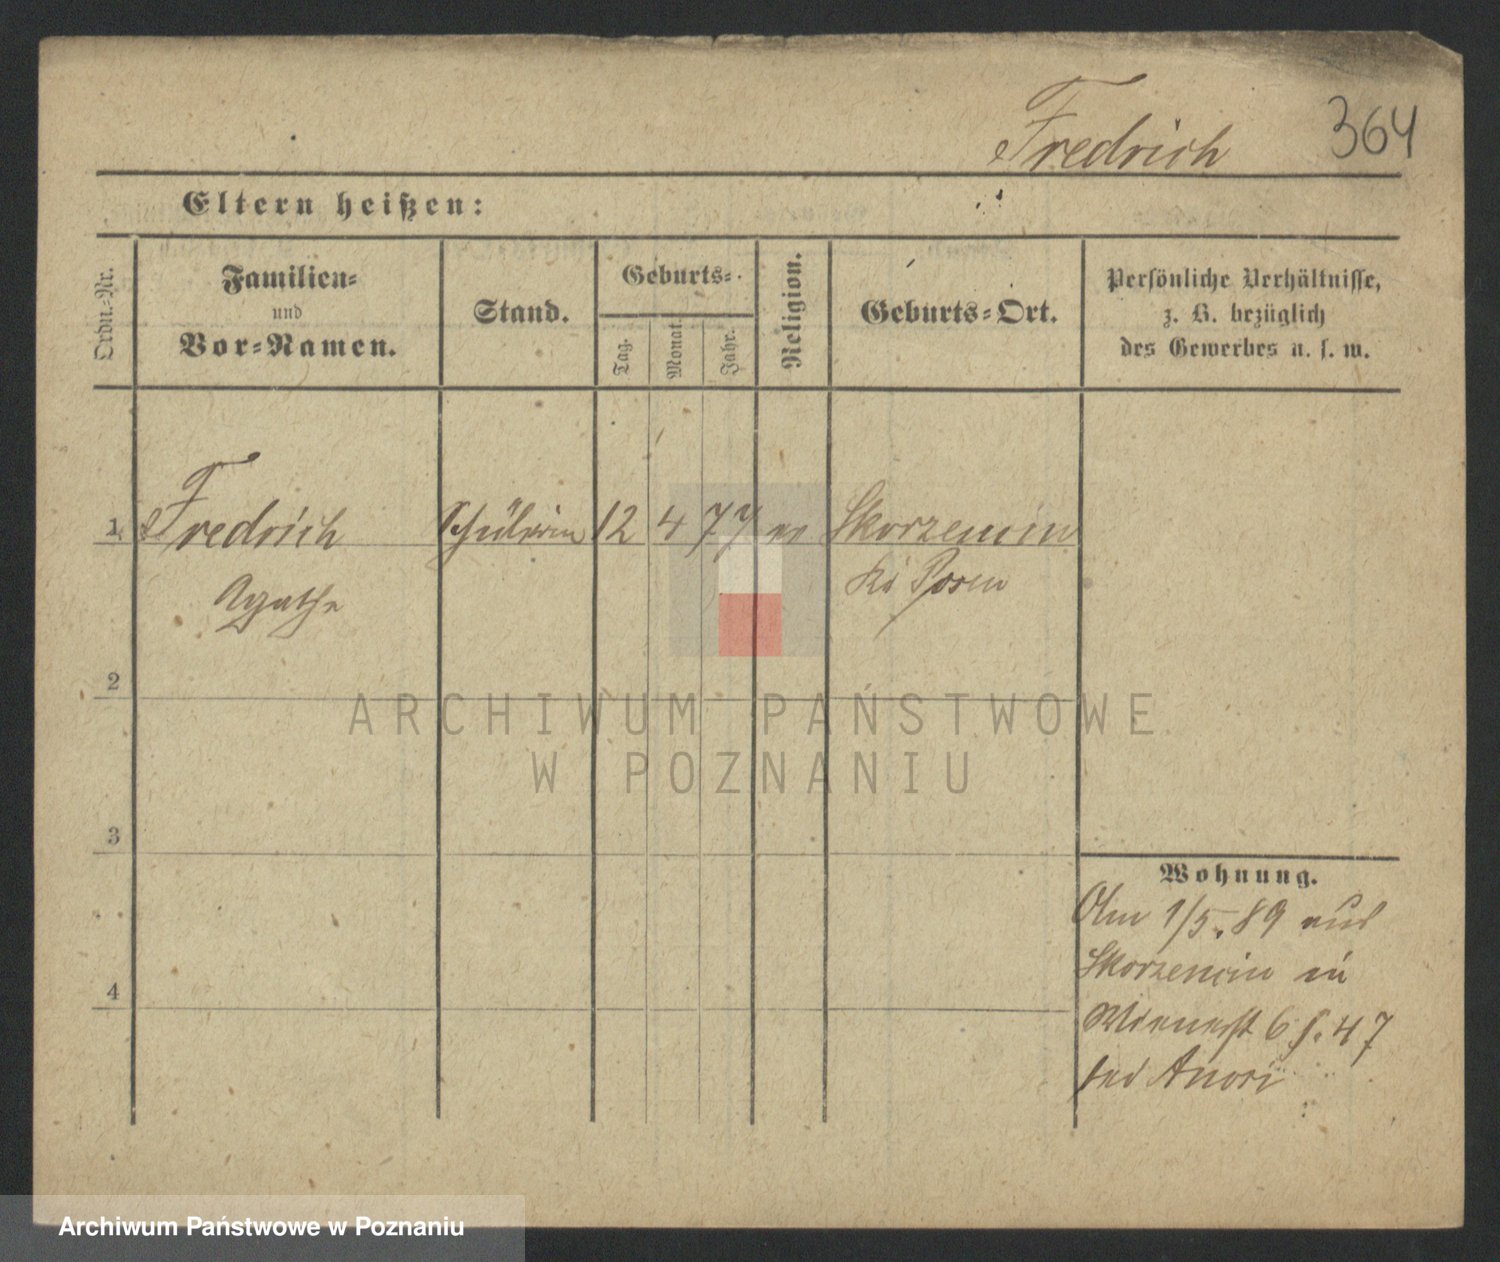 Fredrich 364
Eltern heißen:
Ordn.-Nr.
Familien-
und
Vor-Namen.
Stand.
Geburts-
Tag.
Monat.
Jahr.
Religion.
Geburts-Ort.
Persönliche Verhältnisse,
z. B. bezüglich
des Gewerbes u. s. w.
1 Fredrich Schülerin 12 4 77 Skorzencin
Agathe Posen
2
ARCHIWUM PAŃSTWOWE
W POZNANIU
3
Wohnung.
1/5. 89 aus
Skorzencin in
4
6 47
bei
Archiwum Państwowe w Poznaniu